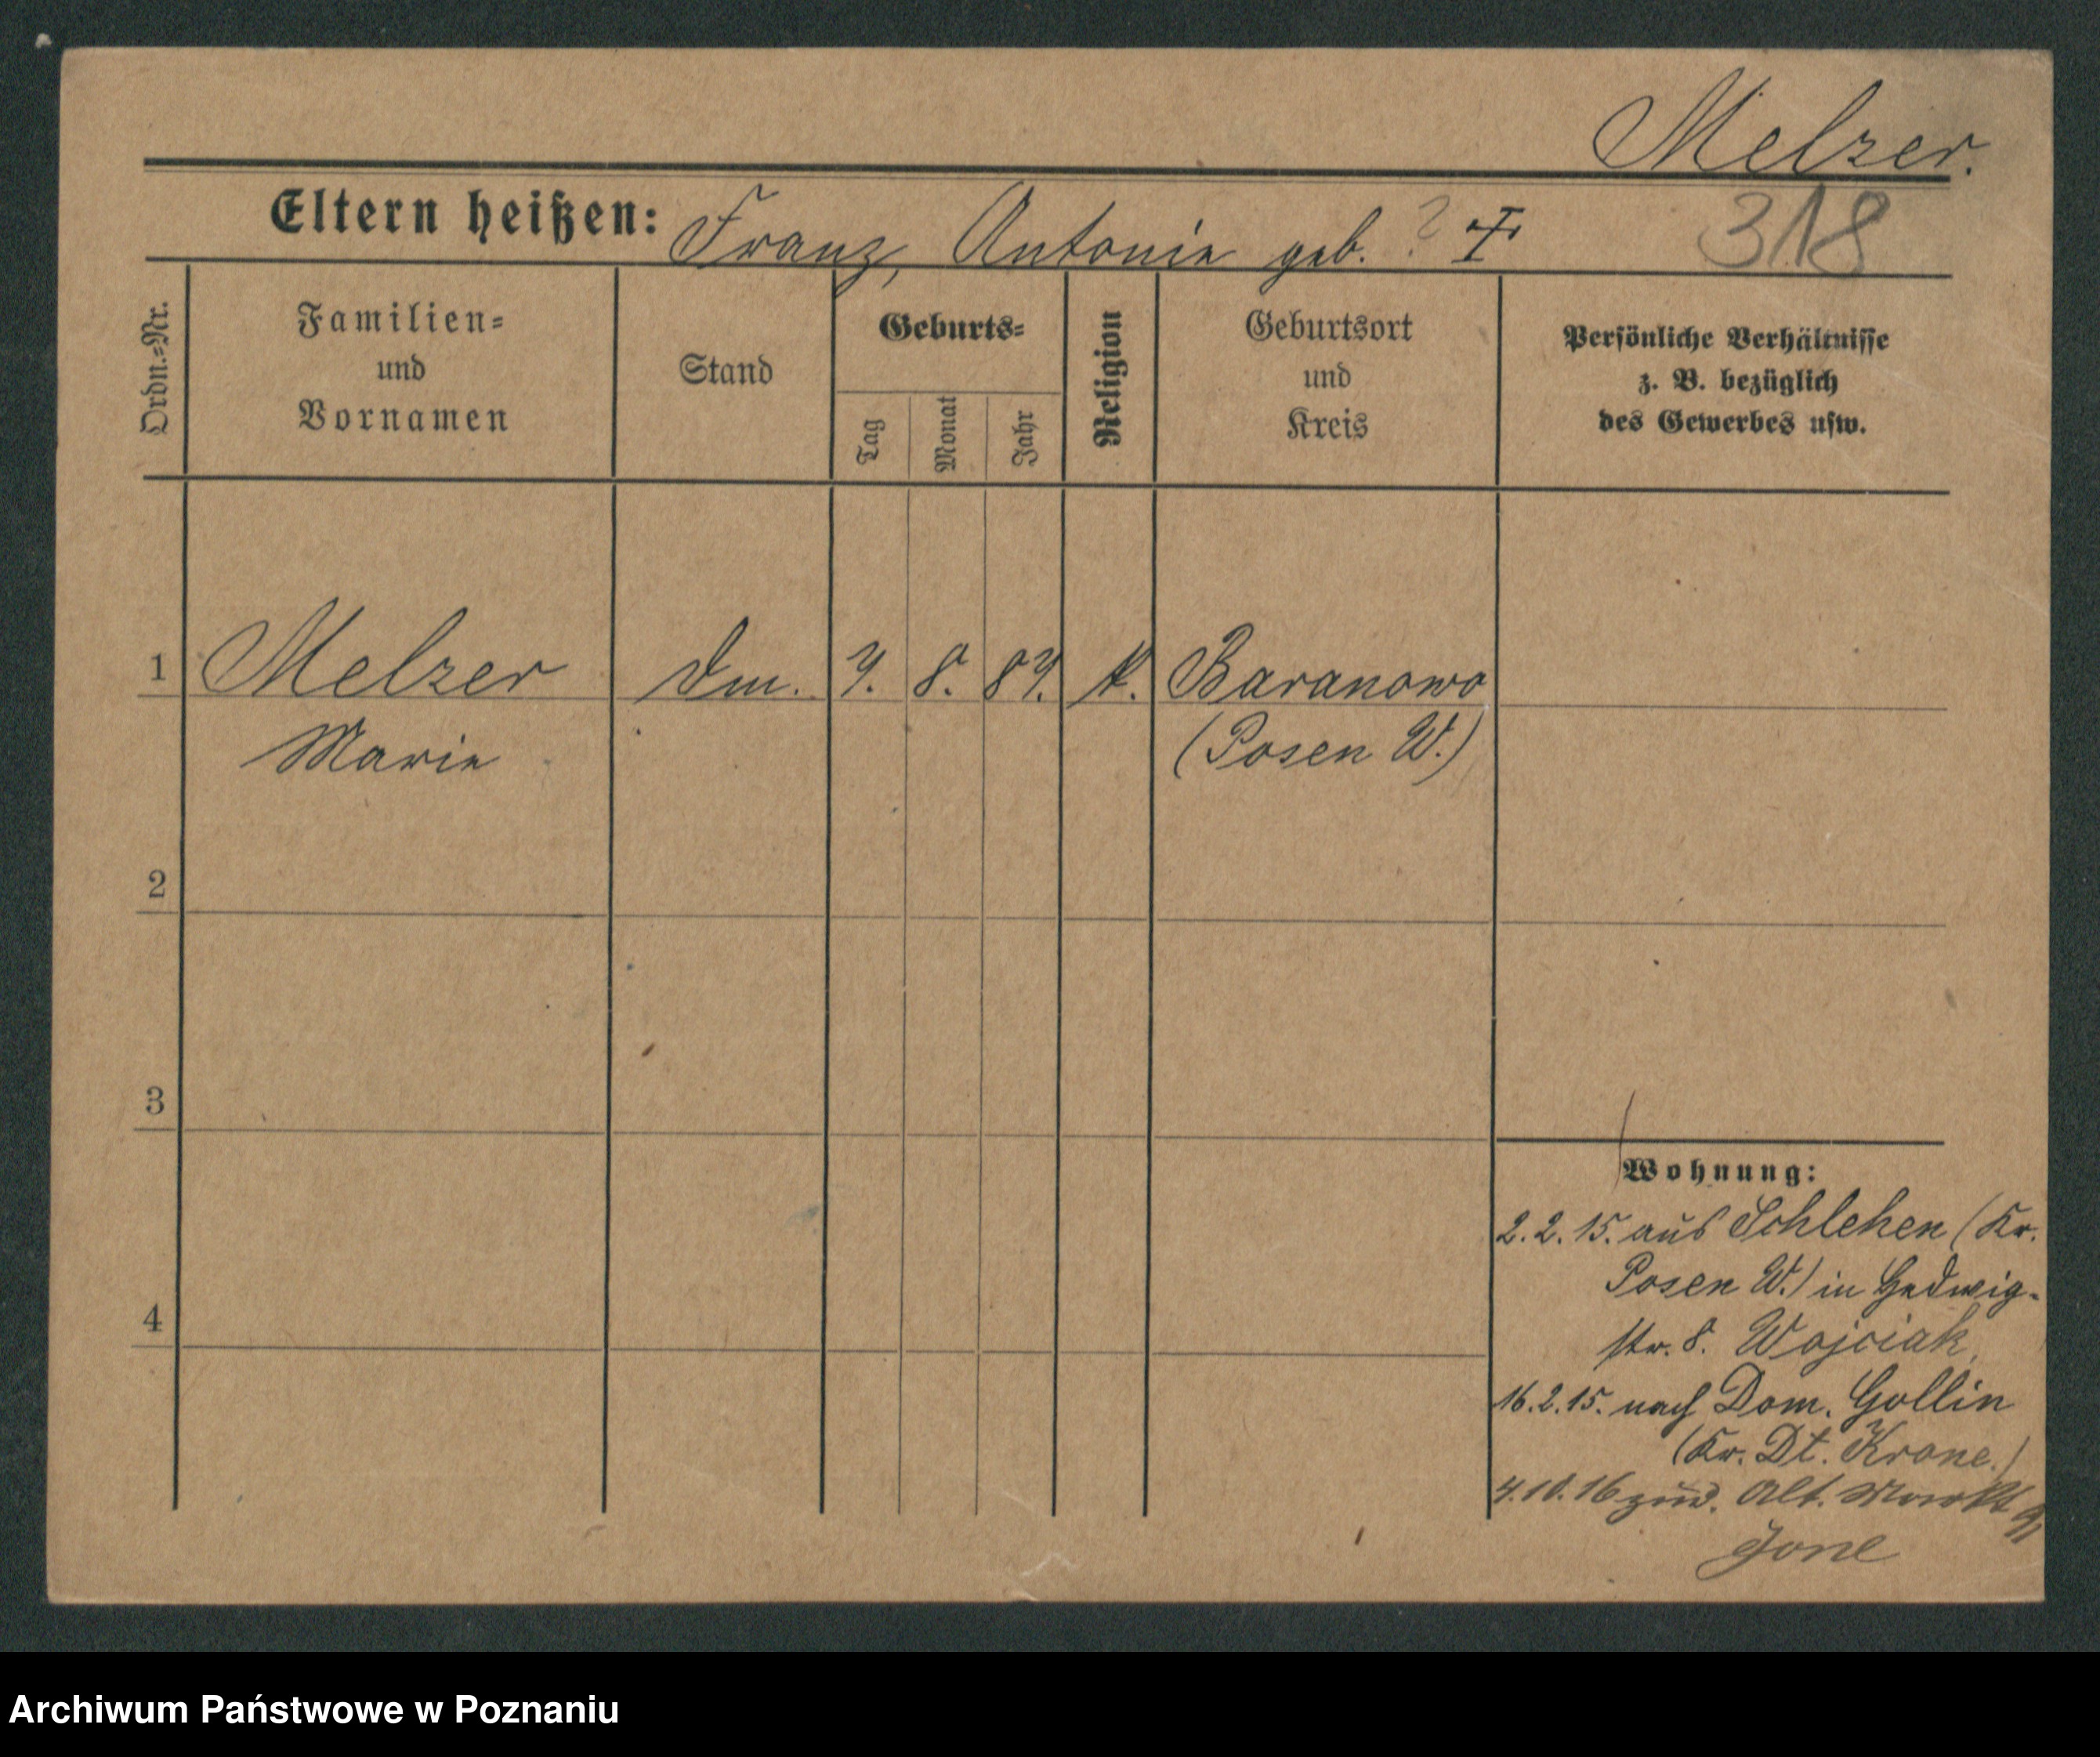 Melzer.
Eltern heißen: Franz, Antonie geb. ? 318
Ordn.-Nr.
Familien-
und
Vornamen
Stand
Geburts-
Tag
Monat
Jahr
Religion
Geburtsort
und
Kreis
Persönliche Verhältnisse
z. B. bezüglich
des Gewerbes usw.
1 Melzer 8. k. Baranowo
Marie (Posen W.)
2
3
4
Wohnung:
2. 2. 15. aus Schlehen (Kr.
Posen W.) in Hedwig-
str. 8. Wojciak,
16. 2. 15. nach Dom. Gollin
(Kr. Dt. Krone.)
10. 16 zur. Alt. Markt
Archiwum Państwowe w Poznaniu